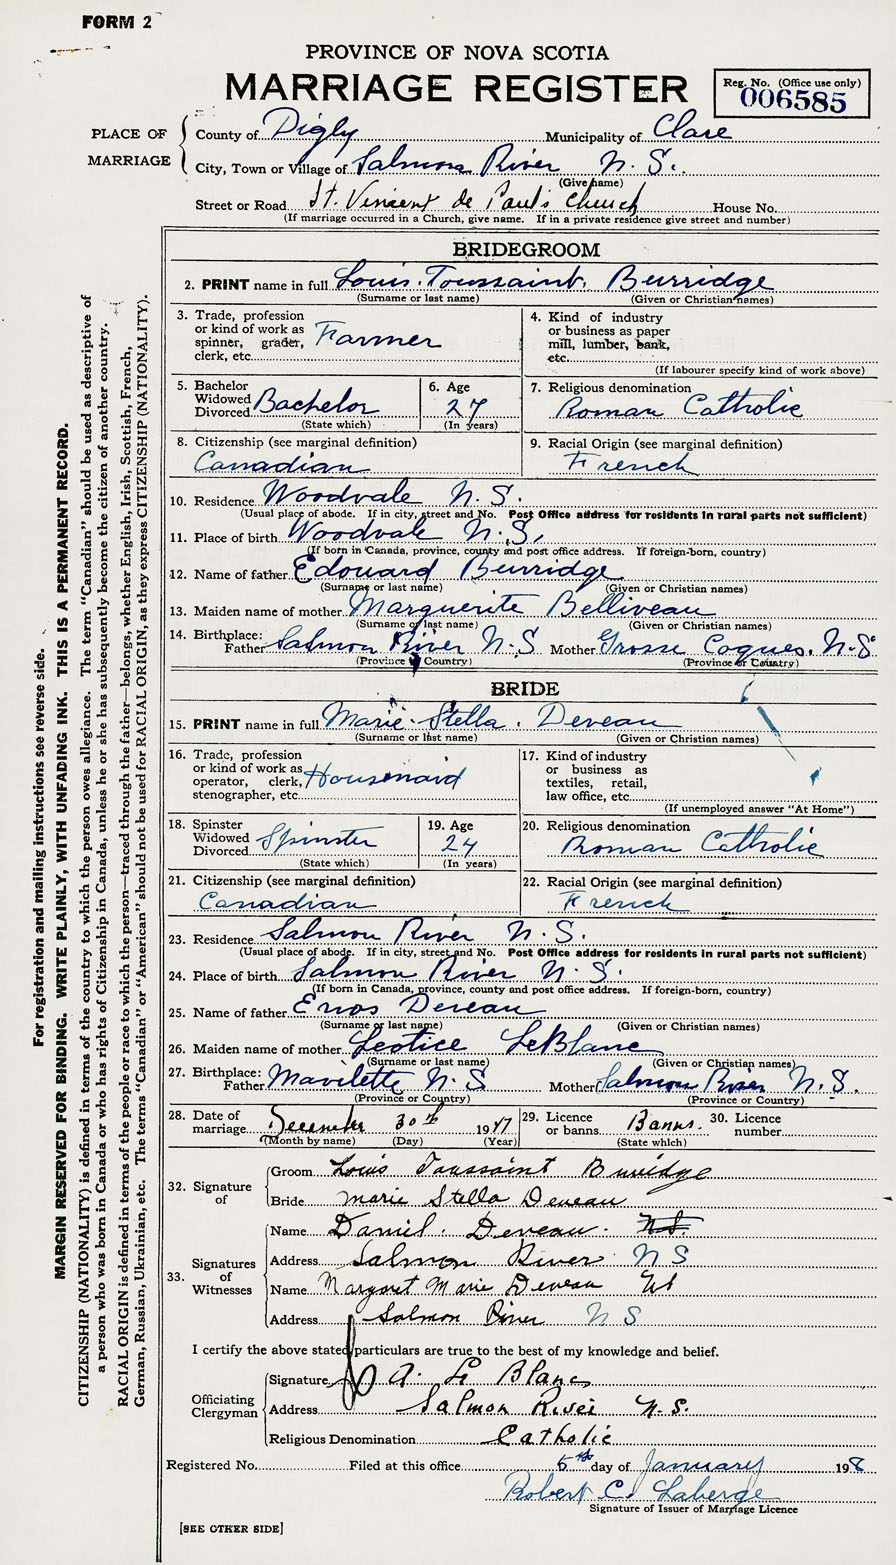 FORM 2
PROVINCE OF NOVA SCOTIA
MARRIAGE REGISTER
Reg. No. (Office use only)
006585
PLACE OF MARRIAGE
County of Digby Municipality of Clare
City, Town or Village of Salmon River N. S.
(Give name)
Street or Road St. Vincent de Paul's Church House No.
(If marriage occurred in a Church, give name. If in a private residence give street and number)
BRIDEGROOM
2. PRINT name in full Louis Toussaint Burridge
(Surname or last name) (Given or Christian names)
3. Trade, profession
or kind of work as
spinner, grader,
clerk, etc. Farmer
4. Kind of industry
or business as paper
mill, lumber, bank,
etc.
(If labourer specify kind of work above)
5. Bachelor
Widowed
Divorced Bachelor
(State which)
6. Age
27
(In years)
7. Religious denomination
Roman Catholic
8. Citizenship (see marginal definition)
Canadian
9. Racial Origin (see marginal definition)
French
10. Residence Woodvale N. S.
(Usual place of abode. If in city, street and No. Post Office address for residents in rural parts not sufficient)
11. Place of birth Woodvale N. S.
(If born in Canada, province, county and post office address. If foreign-born, country)
12. Name of father Edouard Burridge
(Surname or last name) (Given or Christian names)
13. Maiden name of mother Marguerite Belliveau
(Surname or last name) (Given or Christian names)
14. Birthplace:
Father Salmon River N. S Mother Grosse Coques. N. S
(Province or Country) (Province or Country)
BRIDE
15. PRINT name in full Marie Stella Deveau
(Surname or last name) (Given or Christian names)
16. Trade, profession
or kind of work as
operator, clerk,
stenographer, etc. Housemaid
17. Kind of industry
or business as
textiles, retail,
law office, etc.
(If unemployed answer "At Home")
18. Spinster
Widowed
Divorced Spinster
(State which)
19. Age
24
(In years)
20. Religious denomination
Roman Catholic
21. Citizenship (see marginal definition)
Canadian
22. Racial Origin (see marginal definition)
French
23. Residence Salmon River N. S.
(Usual place of abode. If in city, street and No. Post Office address for residents in rural parts not sufficient)
24. Place of birth Salmon River N. S.
(If born in Canada, province, county and post office address. If foreign-born, country)
25. Name of father Enos Deveau
(Surname or last name) (Given or Christian names)
26. Maiden name of mother Leotice LeBlanc
(Surname or last name) (Given or Christian names)
27. Birthplace:
Father Mavilette N. S Mother Salmon River N. S.
(Province or Country) (Province or Country)
28. Date of
marriage December 30th 1947
(Month by name) (Day) (Year)
29. Licence
or banns Banns.
(State which)
30. Licence
number
32. Signature of
Groom Louis Toussaint Burridge
Bride Marie Stella Deveau
33. Signatures of Witnesses
Name Daniel Deveau
Address Salmon River N S
Name Margaret Marie Deveau
Address Salmon River N S
I certify the above stated particulars are true to the best of my knowledge and belief.
Officiating Clergyman
Signature A. Le Blanc
Address Salmon River N. S.
Religious Denomination Catholic
Registered No. Filed at this office 5th day of January 1948
Robert C. Laberge
Signature of Issuer of Marriage Licence
[SEE OTHER SIDE]
For registration and mailing instructions see reverse side.
MARGIN RESERVED FOR BINDING. WRITE PLAINLY, WITH UNFADING INK. THIS IS A PERMANENT RECORD.
CITIZENSHIP (NATIONALITY) is defined in terms of the country to which the person owes allegiance. The term "Canadian" should be used as descriptive of
a person who was born in Canada or who has rights of Citizenship in Canada, unless he or she has subsequently become the citizen of another country.
RACIAL ORIGIN is defined in terms of the people or race to which the person—traced through the father—belongs, whether English, Irish, Scottish, French,
German, Russian, Ukrainian, etc. The terms "Canadian" or "American" should not be used for RACIAL ORIGIN, as they express CITIZENSHIP (NATIONALITY).